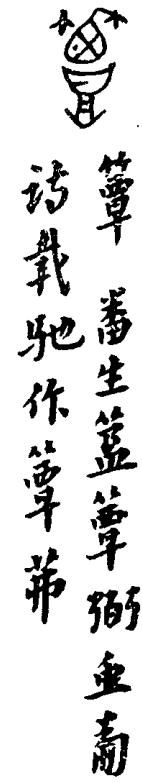 簟 番生簋簟弼魚𤰈
詩載馳作簟茀